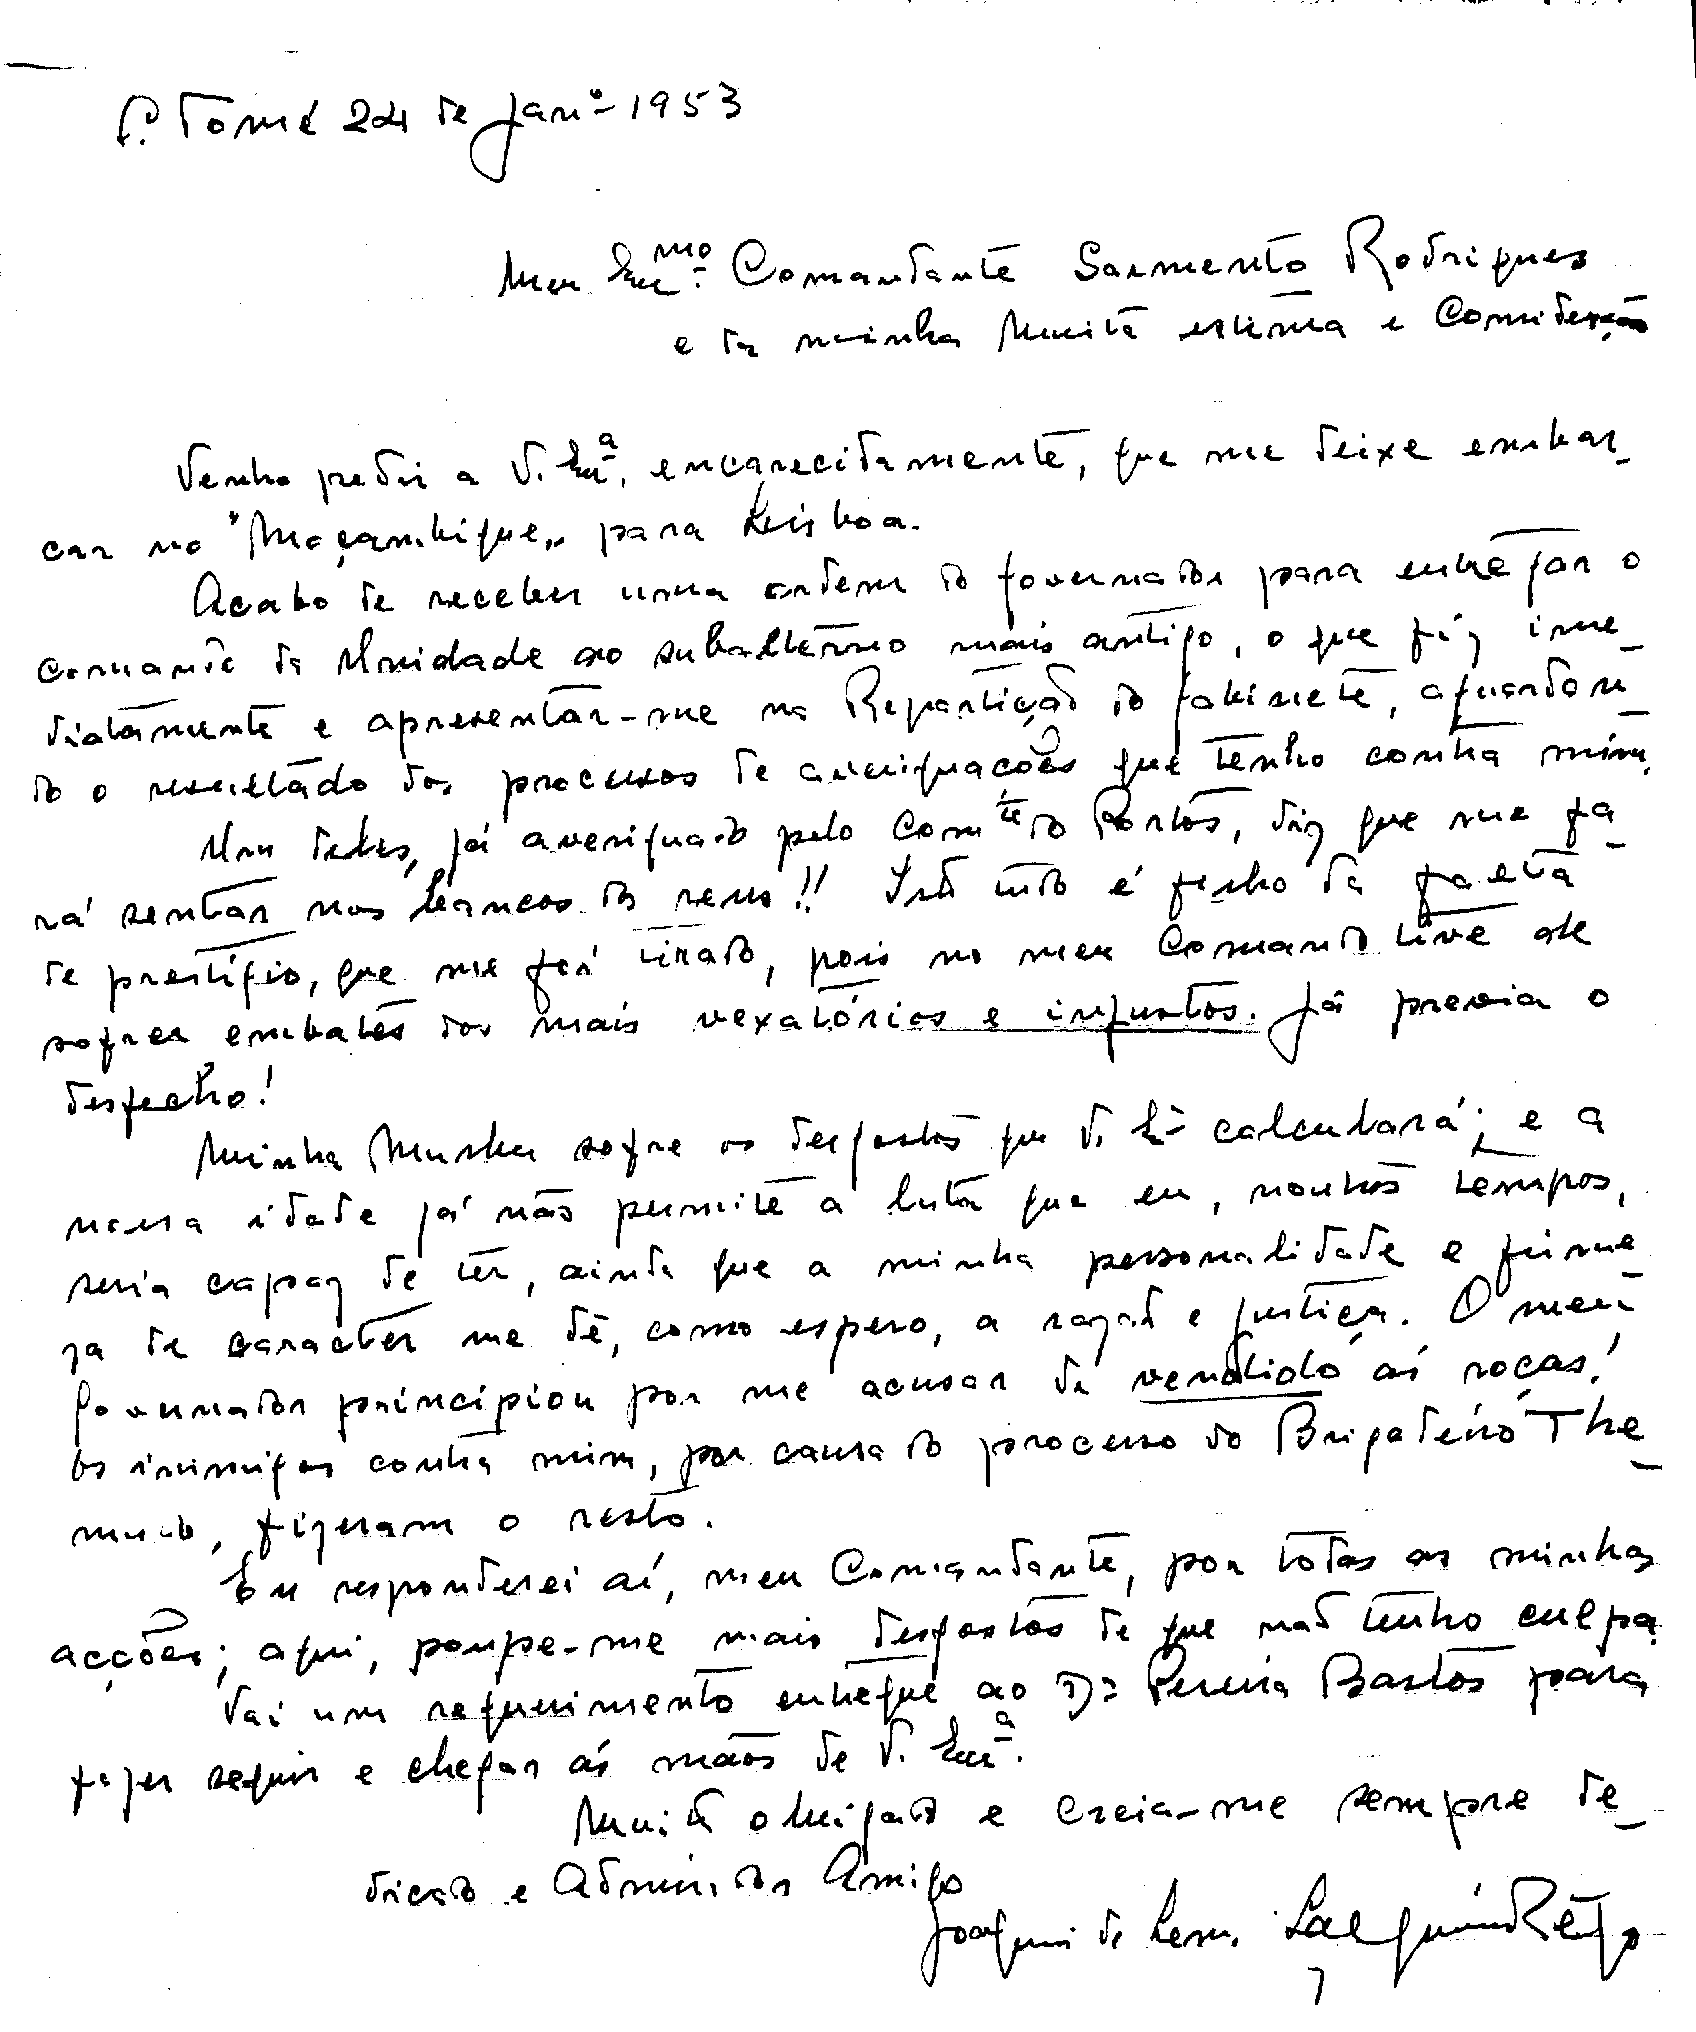 S. Tomé 24 de Janº 1953
Meu Exmo. Comandante Sarmento Rodrigues
e da minha muita estima e Consideração
Venho pedir a V. Exª, encarecidamente, que me deixe embar_
car no "Moçambique" para Lisboa.
Acabo de receber uma ordem do governador para entregar o
comando da Unidade ao subalterno mais antigo, o que fiz ime_
diatamente e apresentar-me na Repartição do gabinete, aguardan_
do o resultado dos processos de averiguações que tenho contra mim.
Um deles, já averiguado pelo Comte do Portos, diz que me fa_
rá sentar nos bancos dos reus!! Isto tudo é filho da falta
de prestígio, que me foi tirado, pois no meu Comando tive de
sofrer embates dos mais vexatórios e injustos. Já previa o
desfecho!
Minha Mulher sofre os desgostos que V. Exª calculará; e a
nossa idade já não permite a luta que eu, noutros tempos,
seria capaz de ter, ainda que a minha personalidade e firme_
za de caracter me dê, como espero, a razão e justiça. O meu
Governador principiou por me acusar de vendido ás roças!
Os inimigos contra mim, por causa do processo do Brigadeiro The_
mudo, fizeram o resto.
Eu responderei aí, meu Comandante, por todas as minhas
acções; aqui, poupe-me mais desgostos de que não tenho culpa.
Vai um requerimento entregue ao Dr Pereira Bastos para
fazer seguir e chegar ás mãos de V. Exª.
Muito obrigado e creia-me sempre de_
dicado e Admirador Amigo
Joaquim de Lemos